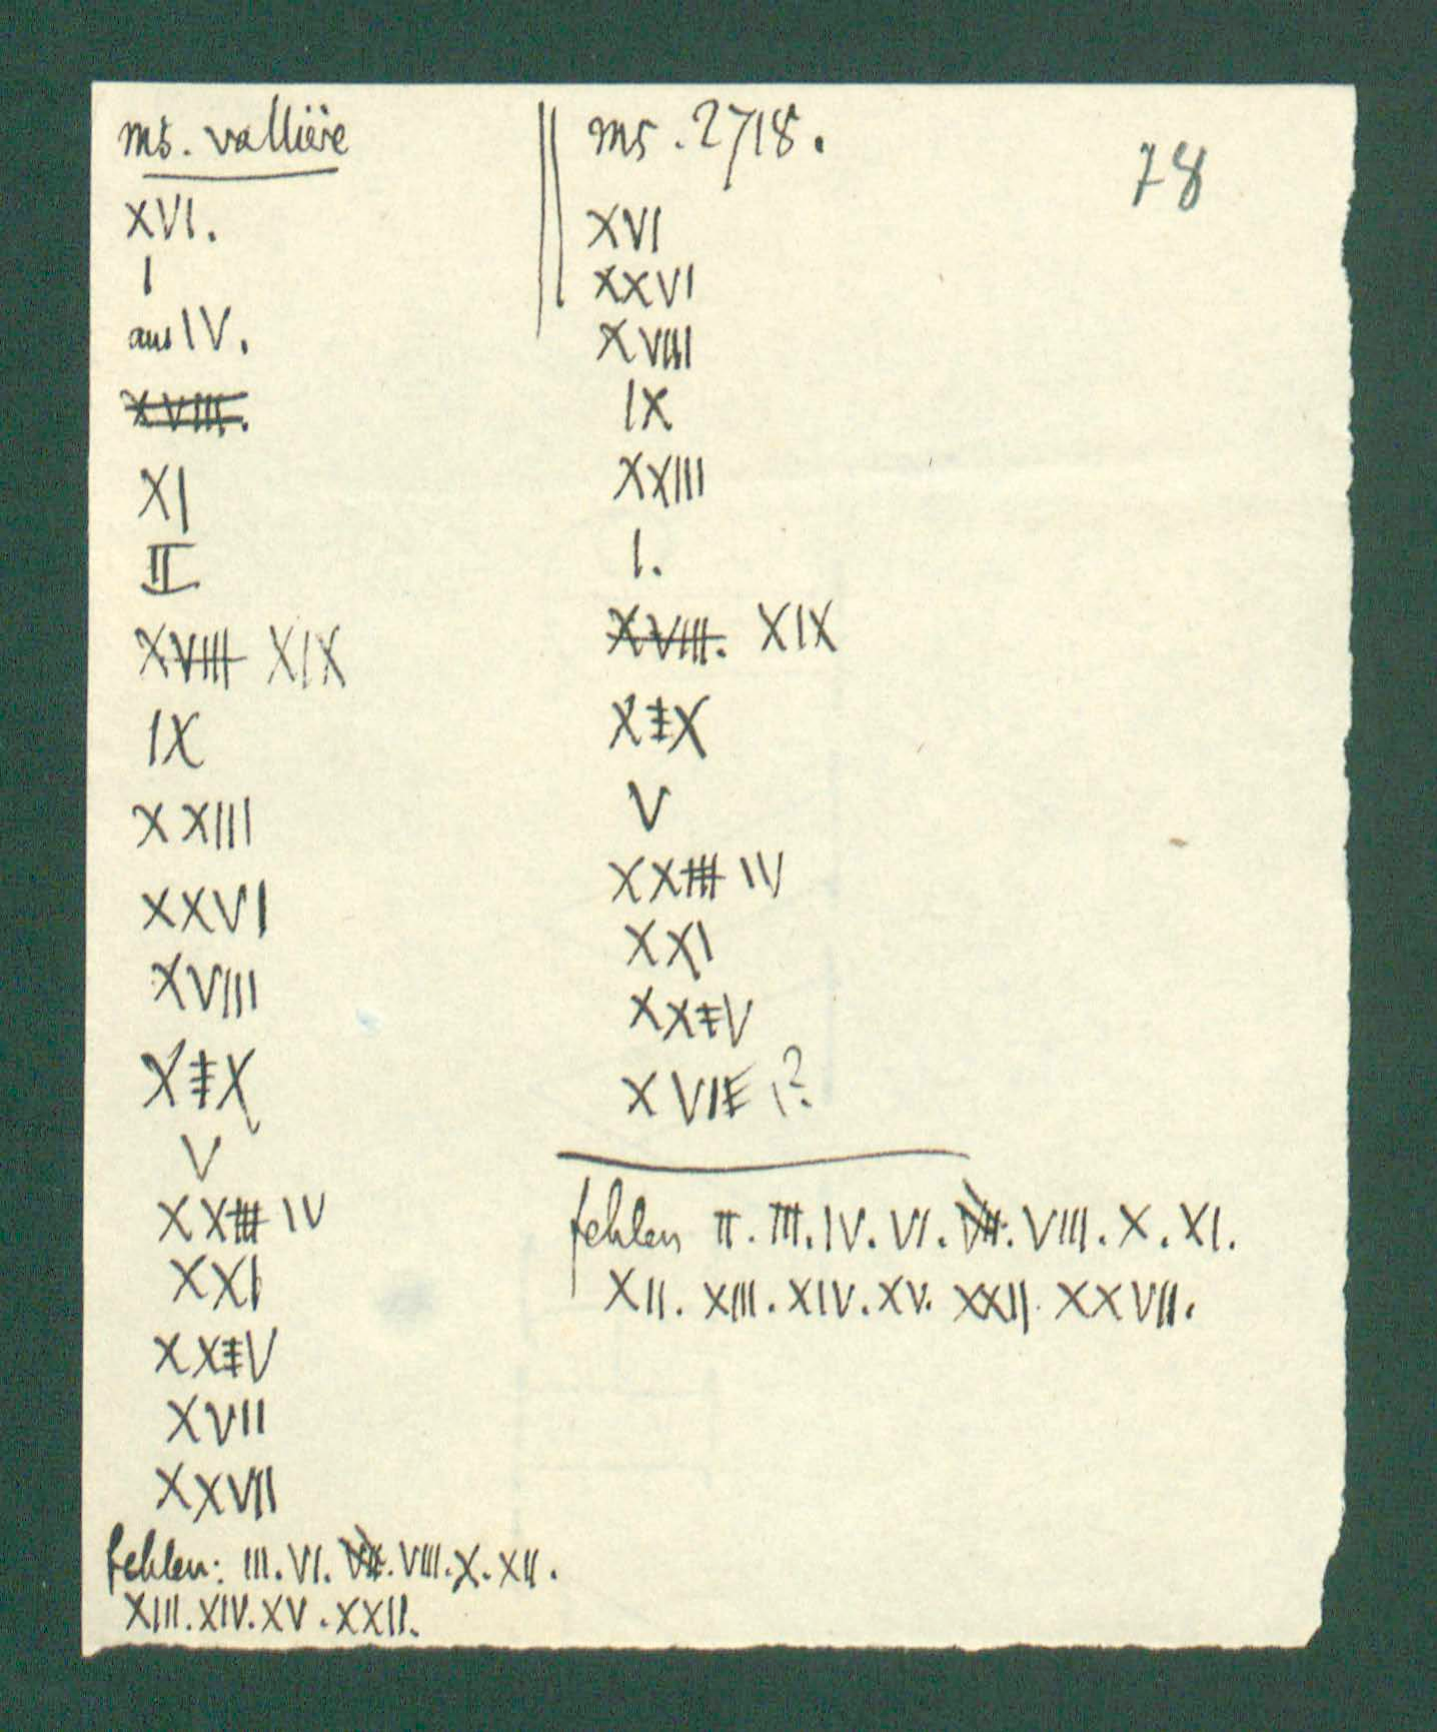 ms. vallière
XVI.
I
aus IV.
XVIII.
XI
II
XVIII XIX
IX
XXIII
XXVI
XVIII
XIX
V
XXIII IV
XXI
XXIV
XVII
XXVII
fehlen: III. VI. VII. VIII. X. XII.
XIII. XIV. XV. XXII.
ms. 2718.
XVI
XXVI
XVIII
IX
XXIII
I.
XVIII. XIX
XIX
V
XXIII IV
XXI
XXIV
XVII ?
fehlen II. III. IV. VI. VII. VIII. X. XI.
XII. XIII. XIV. XV. XXII. XXVII.
78